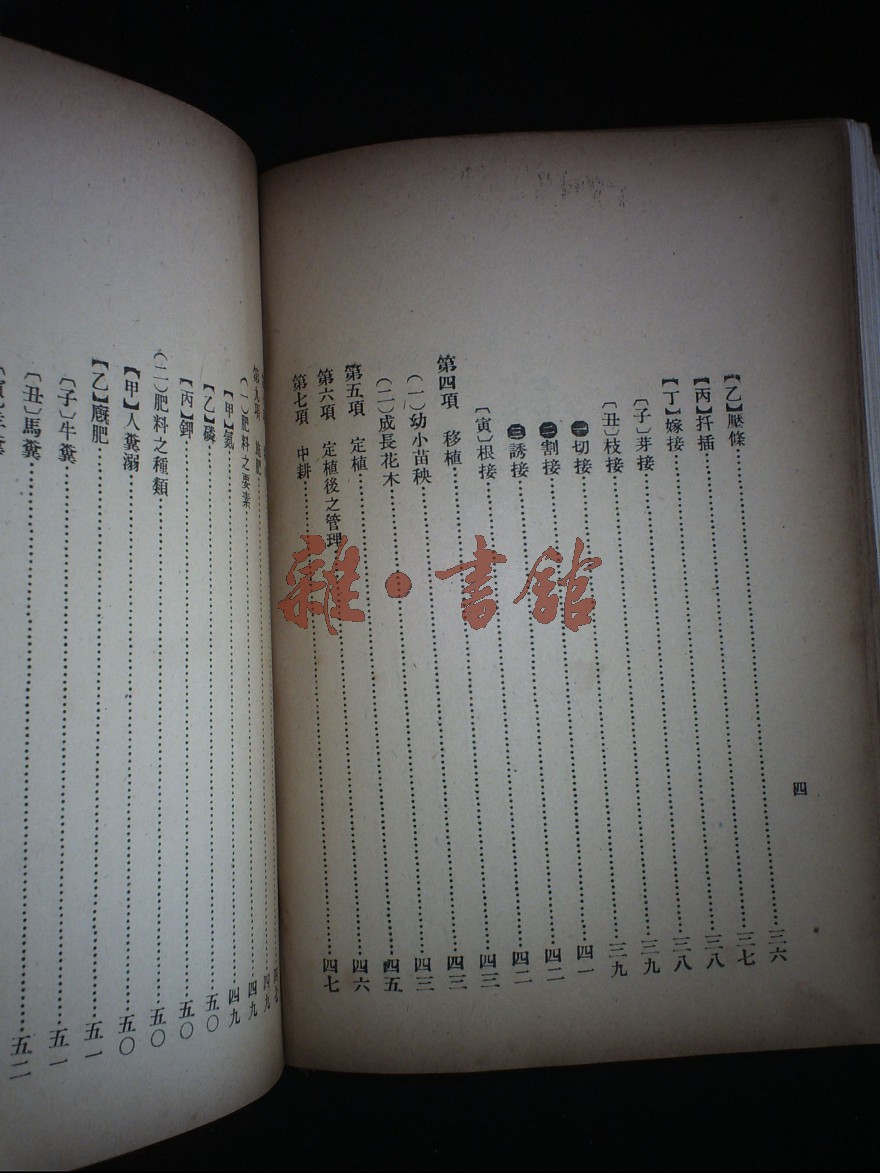 四
【乙】壓條……三六
【丙】扦插……三七
【丁】嫁接……三八
〔子〕芽接……三八
〔丑〕枝接……三九
㊀切接……三九
㊁割接……四一
㊂誘接……四二
〔寅〕根接……四二
第四項　移植……四三
（一）幼小苗秧……四三
（二）成長花木……四三
第五項　定植……四五
第六項　定植後之管理……四六
第七項　中耕……四七
第九項　施肥……四九
（一）肥料之要素……四九
【甲】氮……四九
【乙】磷……五〇
【丙】鉀……五〇
（二）肥料之種類……五〇
【甲】人糞溺……五〇
【乙】廐肥……五一
〔子〕牛糞……五一
〔丑〕馬糞……五二
雜·書館